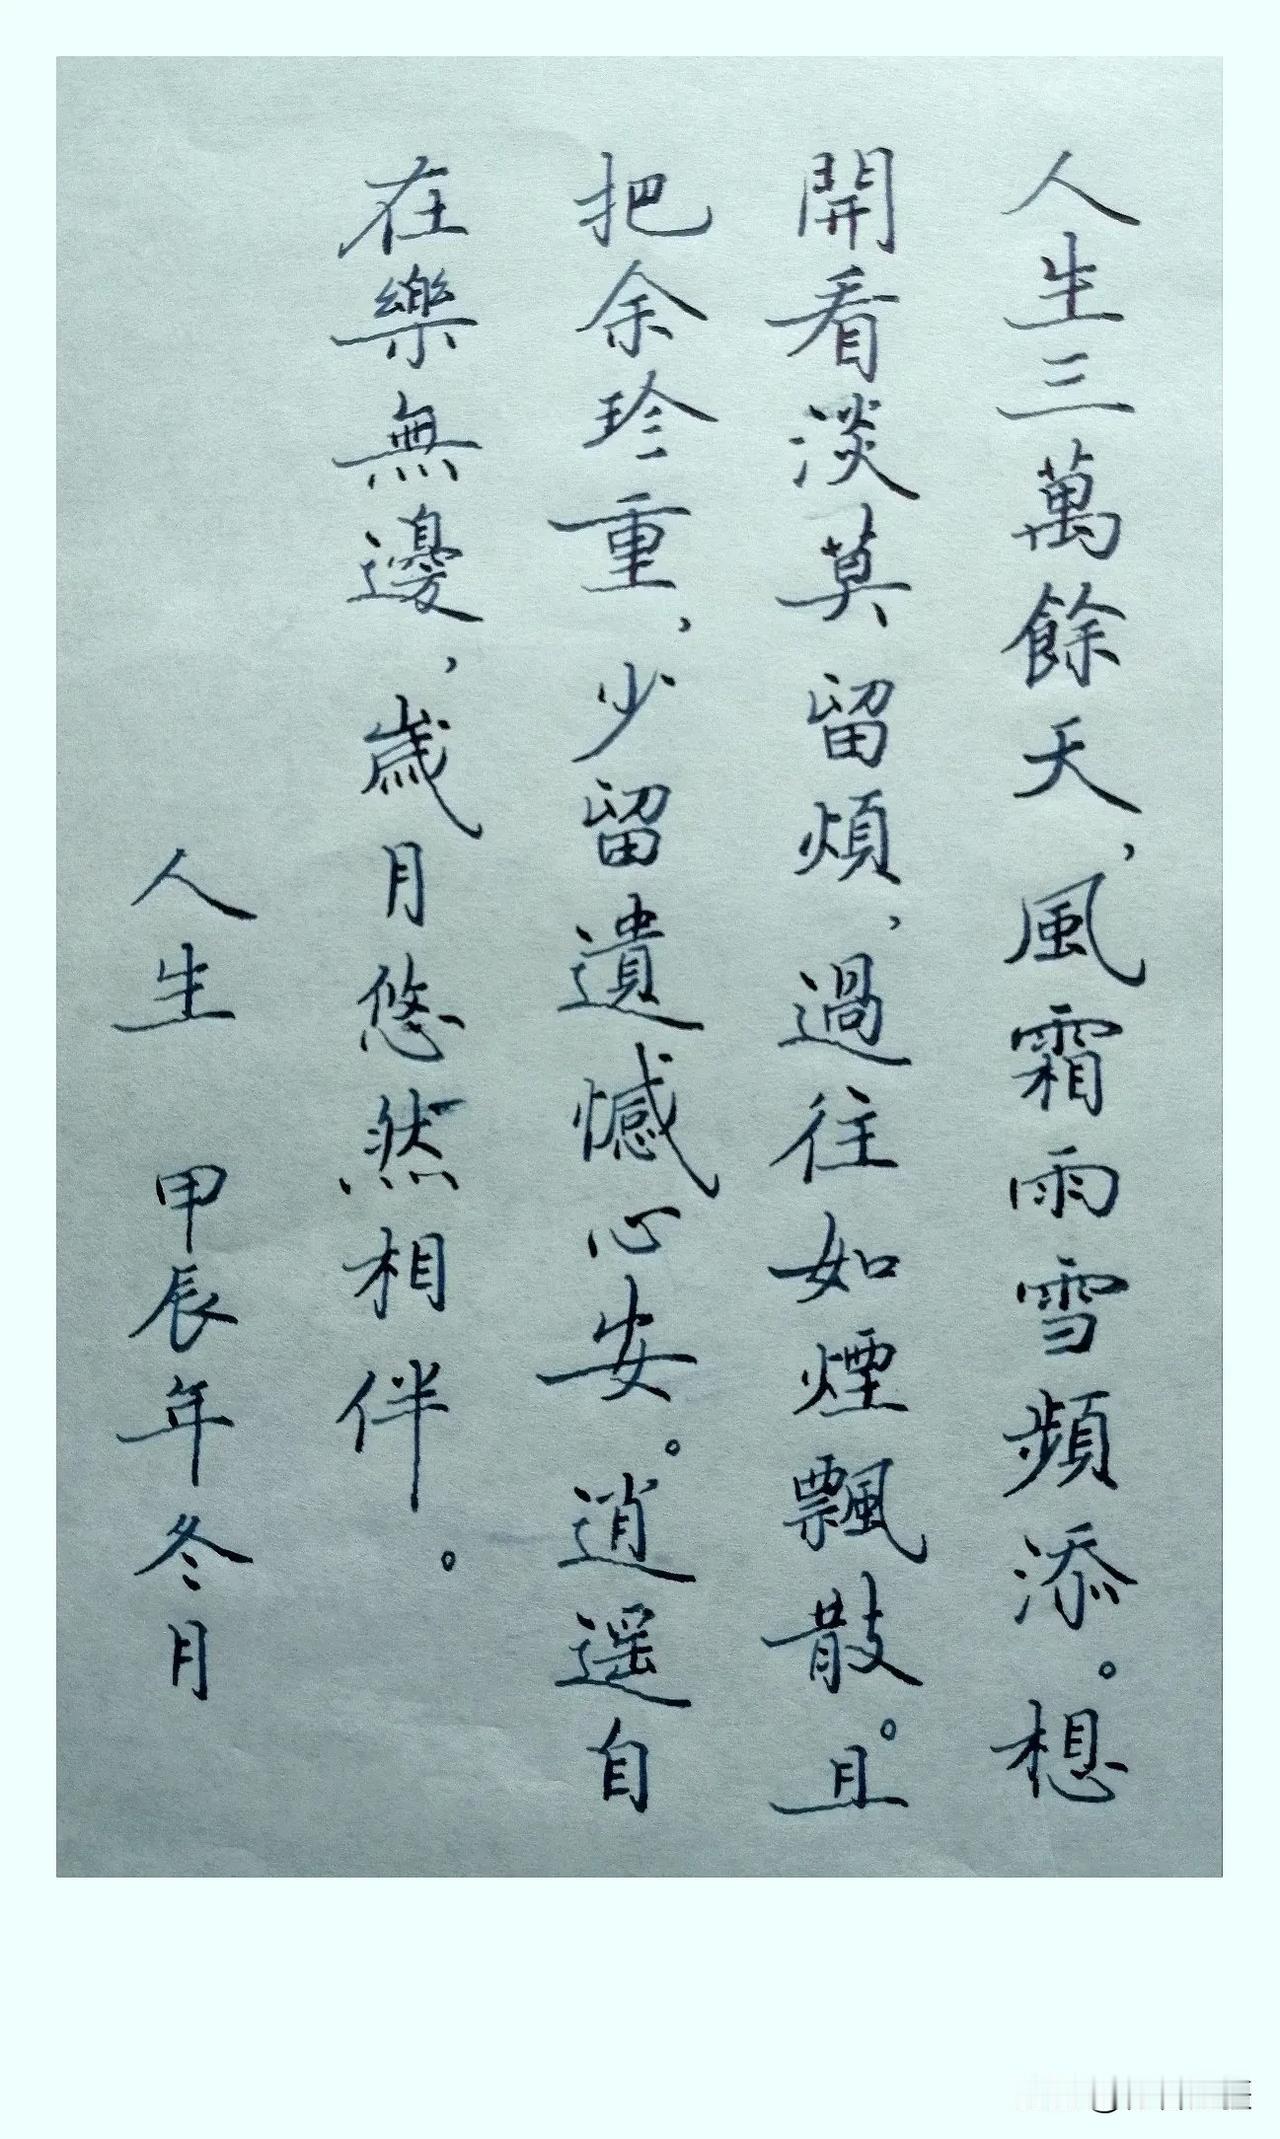 人生三萬餘天，風霜雨雪頻添。想
開看淡莫留煩，過往如煙飄散。且
把余珍重，少留遺憾心安。逍遥自
在樂無邊，歲月悠然相伴。
人生 甲辰年冬月